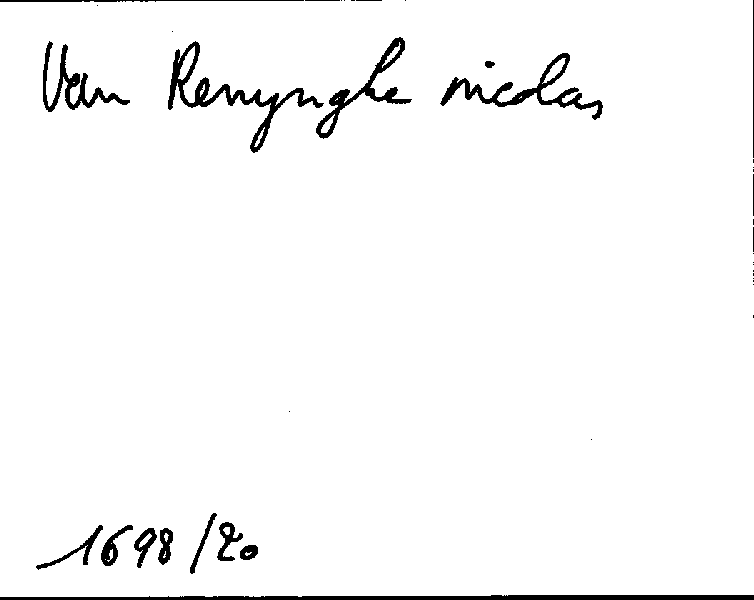 Van Renynghe nicolas
1698/20